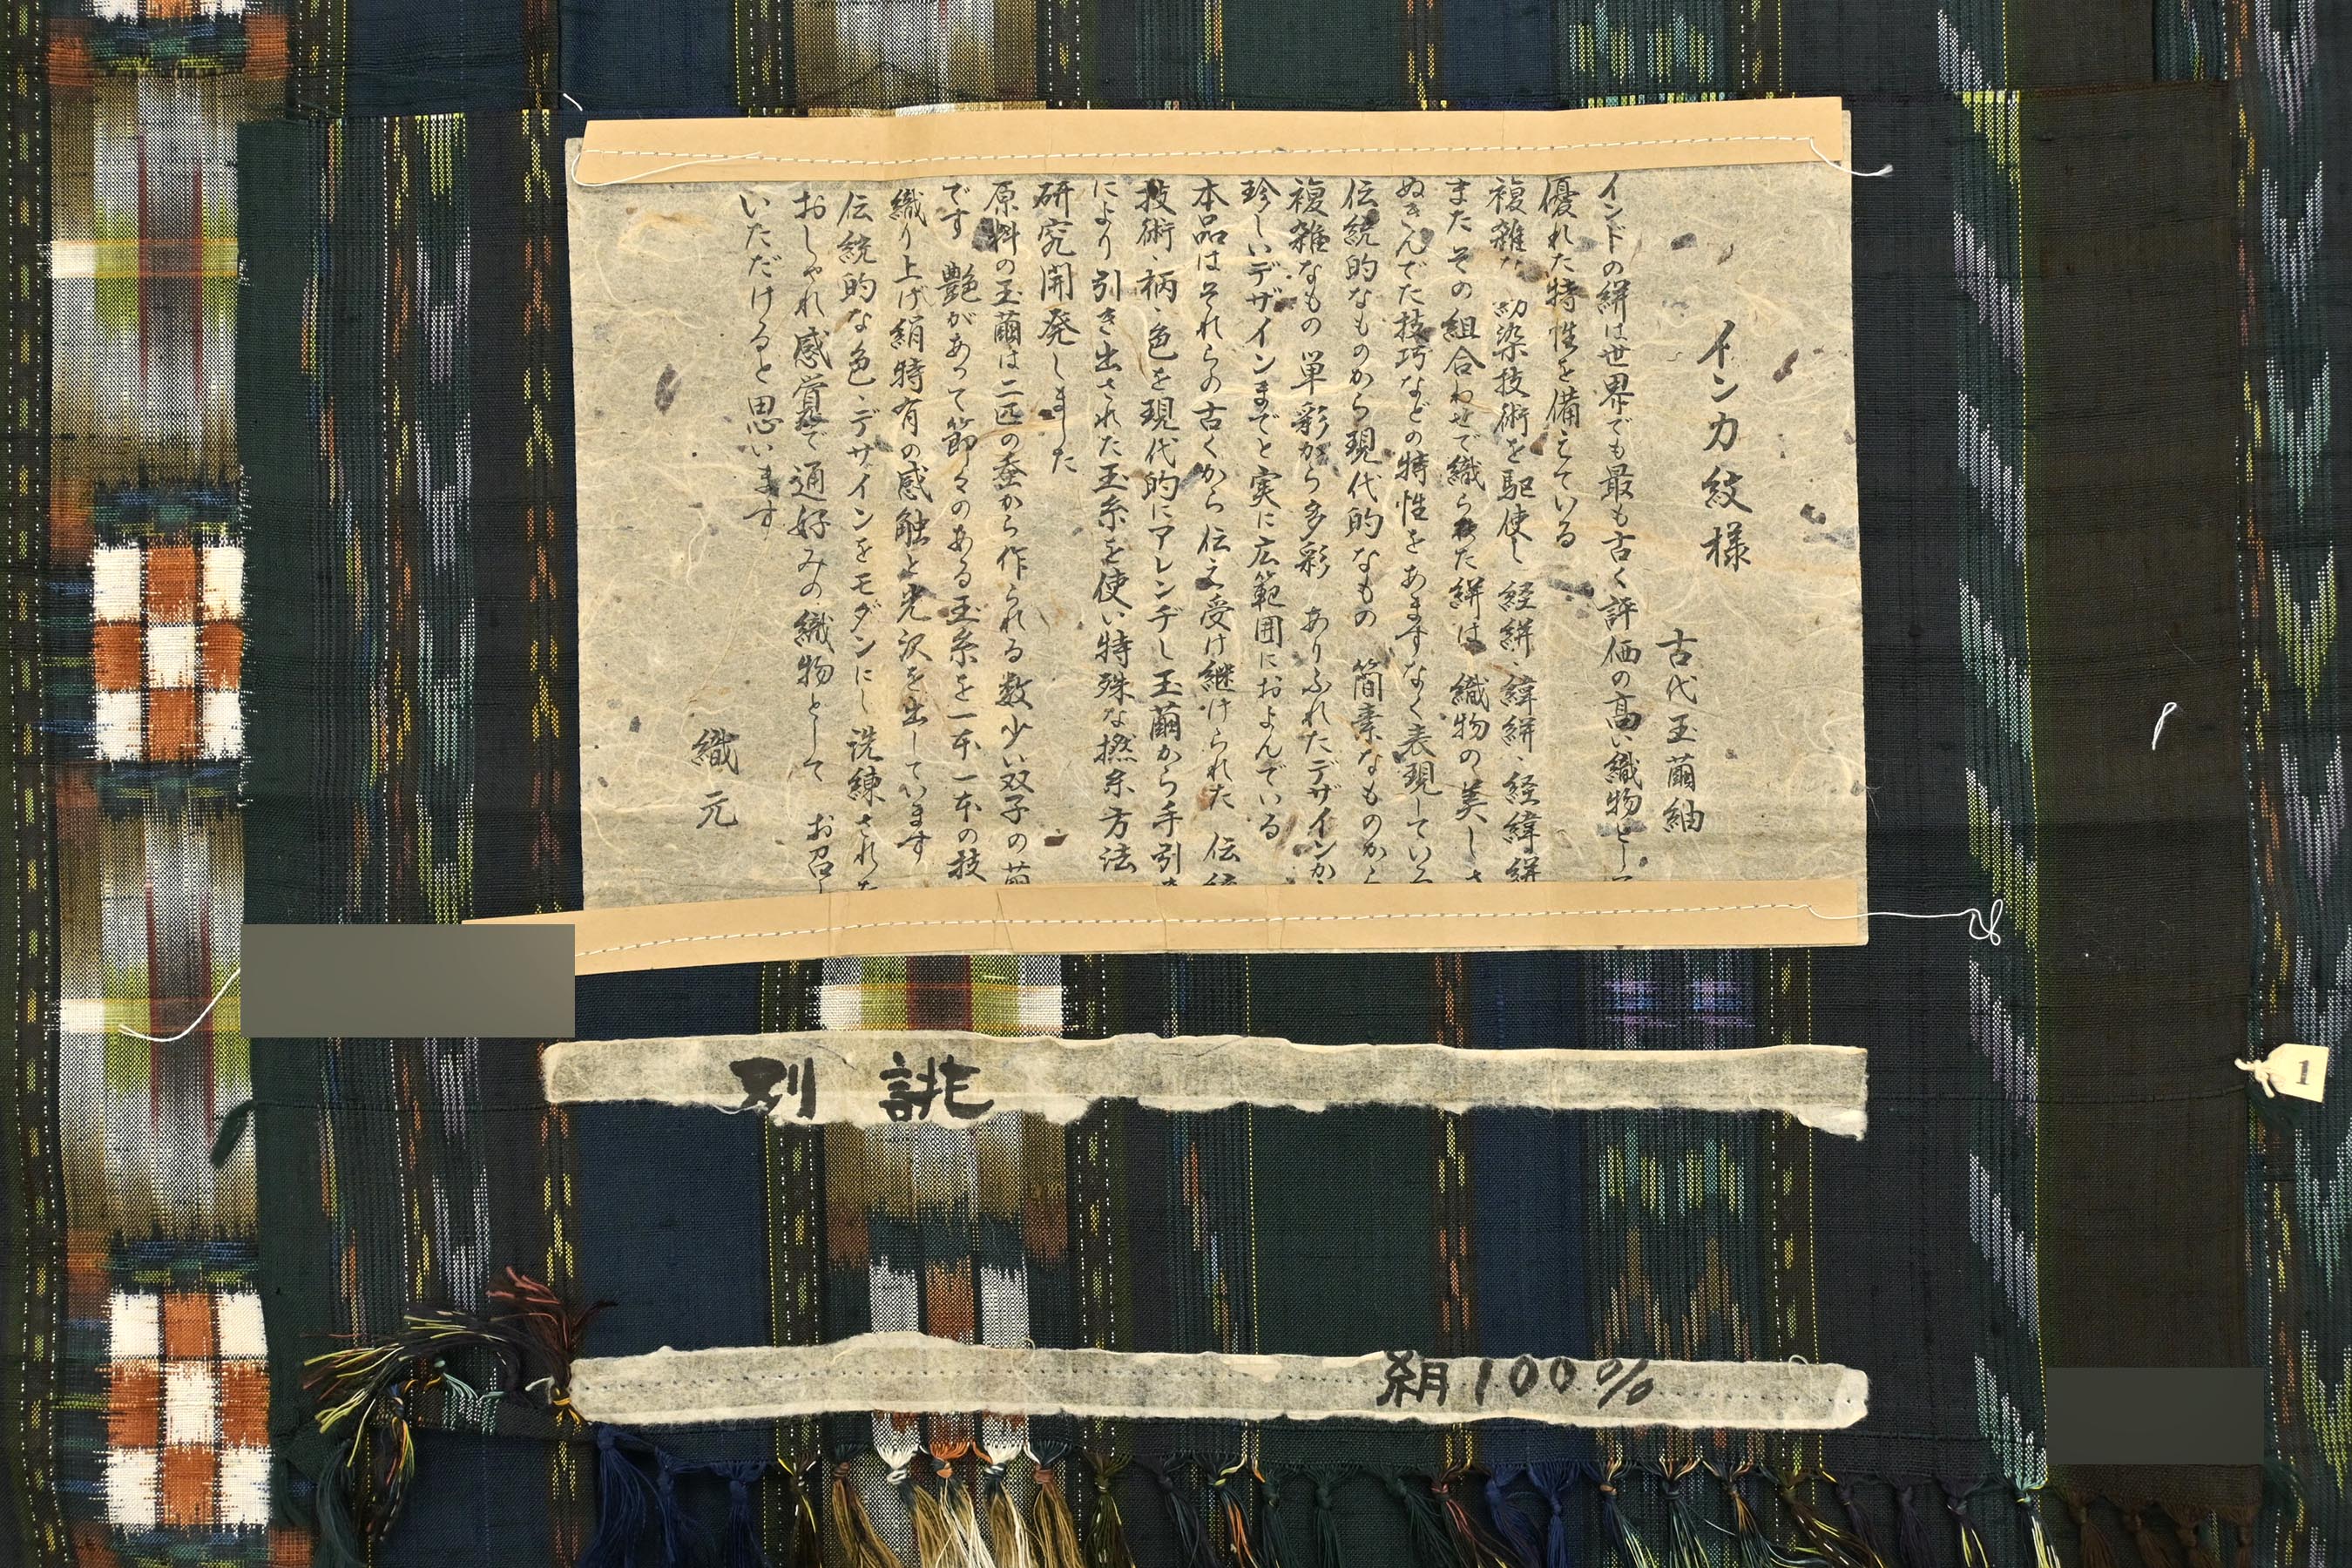 インカ紋様
古代玉繭紬
インドの絣は世界でも最も古く評価の高い織物とし
優れた特性を備えている
複雑な 紡染技術を駆使し 経絣、緯絣、経緯絣
また その組合わせで織られた 絣は 織物の 美しさ
ぬきんでた技巧などの特性を あますなく表現している
伝統的なものから現代的なもの 簡素なものから
複雑なもの 単彩から多彩 ありふれたデザインか
珍しいデザインまでと実に広範囲におよんでいる
本品はそれらの古くから 伝え受け継けられた 伝統
技術、柄、色を現代的にアレンヂし玉繭から手引き
により引き出された玉糸を使い特殊な撚糸方法
研究開発しました
原料の玉繭は二匹の蚕から作られる数少い双子の繭
です 艶があって節々のある玉糸を一本一本の技
織り上げ絹特有の感触と光沢を出しています
伝統的な色、デザインをモダンにし洗練された
おしゃれ感覚で通好みの織物として お召し
いただけると思います
織元
別誂
絹100%
1